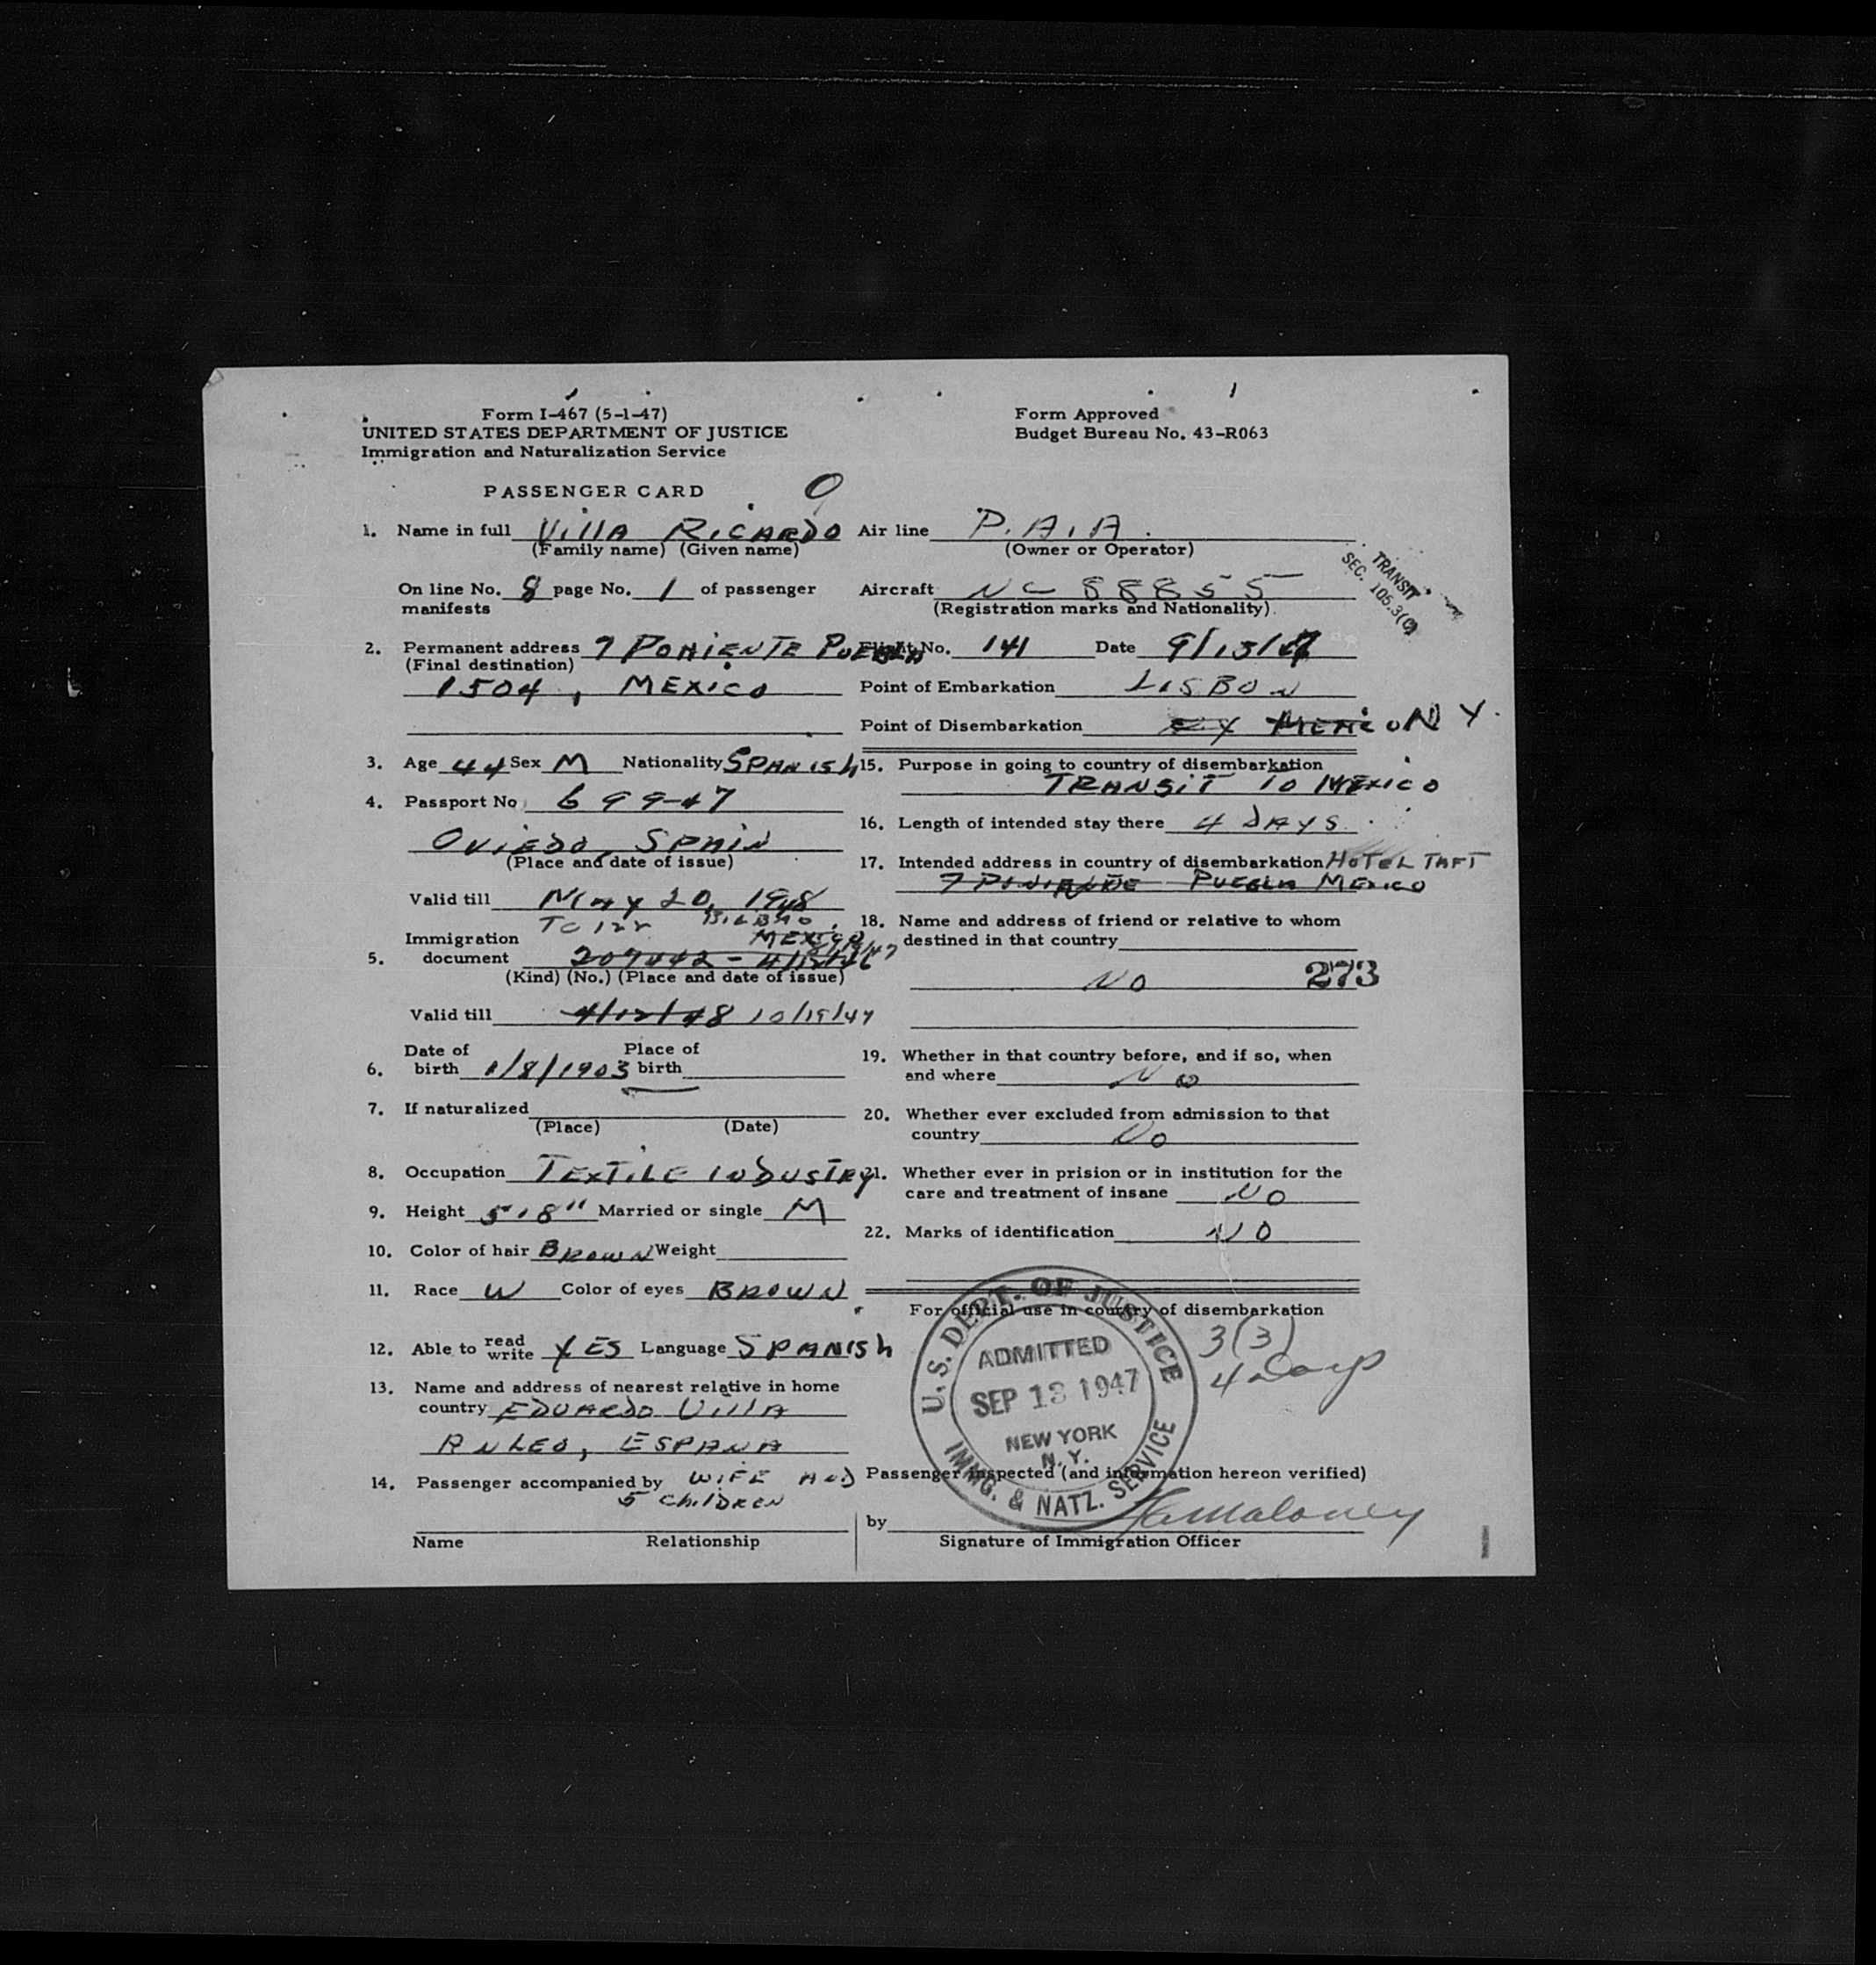 Form I-467 (5-1-47)
UNITED STATES DEPARTMENT OF JUSTICE
Immigration and Naturalization Service
Form Approved
Budget Bureau No. 43-R063
PASSENGER CARD
1. Name in full VillA RICARDO
(Family name) (Given name)
Air line P.A.A.
(Owner or Operator)
On line No. 8 page No. 1 of passenger
manifests
Aircraft NC 88855
(Registration marks and Nationality)
TRANSIT
SEC. 105.3(C)
2. Permanent address 7 PONIENTE PUEBLA
(Final destination)
1504, MEXICO
Flight No. 141 Date 9/13/47
Point of Embarkation LISBON
Point of Disembarkation MEXICO N Y.
3. Age 44 Sex M Nationality SPANISh
4. Passport No 699-47
OVIEDO, SPAIN
(Place and date of issue)
Valid till MAY 20, 1948
TC 122 BILBAO
MEXICO
5. Immigration
document 207442 - 4/12/46
(Kind) (No.) (Place and date of issue)
Valid till 4/12/48 10/19/47
6. Date of
birth 1/8/1903 Place of
birth
7. If naturalized
(Place) (Date)
8. Occupation TEXTILE INDUSTRY
9. Height 5'8" Married or single M
10. Color of hair BROWN Weight
11. Race W Color of eyes BROWN
12. Able to read
write YES Language SPANISh
13. Name and address of nearest relative in home
country EDUARDO VillA
ESPANA
14. Passenger accompanied by WIFE AND
5 ChilDREN
Name Relationship
15. Purpose in going to country of disembarkation
TRANSIT TO MEXICO
16. Length of intended stay there 4 DAYS
17. Intended address in country of disembarkation HOTEL TAFT
7 PONIENTE PUEBLA MEXICO
18. Name and address of friend or relative to whom
destined in that country
NO 273
19. Whether in that country before, and if so, when
and where NO
20. Whether ever excluded from admission to that
country NO
21. Whether ever in prision or in institution for the
care and treatment of insane NO
22. Marks of identification NO
For official use in country of disembarkation
U.S. DEPT. OF JUSTICE
ADMITTED
SEP 13 1947
NEW YORK
N.Y.
IMMG. & NATZ. SERVICE
3(3)
4 Days
Passenger inspected (and information hereon verified)
by Maloney
Signature of Immigration Officer